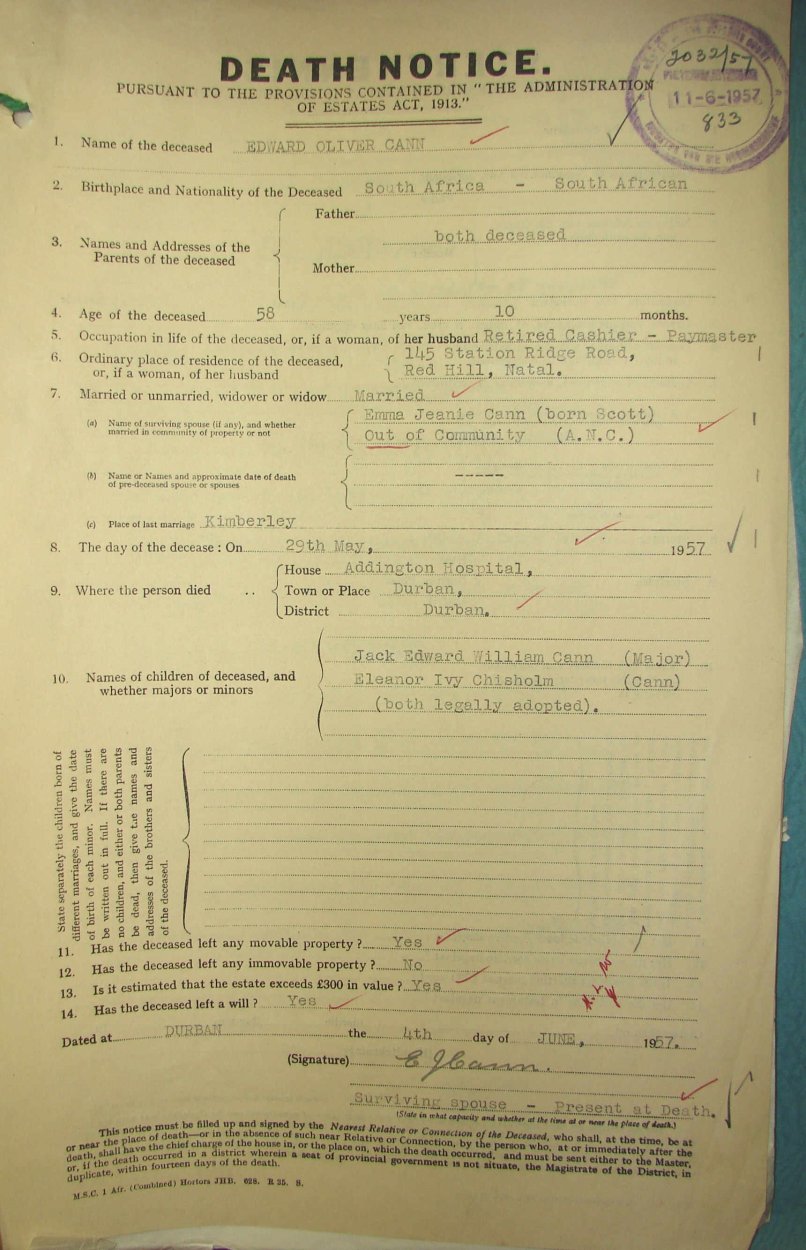 2032/57
11-6-1957
833
DEATH NOTICE.
PURSUANT TO THE PROVISIONS CONTAINED IN "THE ADMINISTRATION
OF ESTATES ACT, 1913."
1. Name of the deceased EDWARD OLIVER CANN
2. Birthplace and Nationality of the Deceased South Africa - South African
3. Names and Addresses of the Parents of the deceased
Father
both deceased
Mother
4. Age of the deceased 58 years 10 months.
5. Occupation in life of the deceased, or, if a woman, of her husband Retired Cashier - Paymaster
6. Ordinary place of residence of the deceased, or, if a woman, of her husband
145 Station Ridge Road,
Red Hill, Natal.
7. Married or unmarried, widower or widow Married
(a) Name of surviving spouse (if any), and whether married in community of property or not
Emma Jeanie Cann (born Scott)
Out of Community (A.N.C.)
(b) Name or Names and approximate date of death of pre-deceased spouse or spouses
-----
(c) Place of last marriage Kimberley
8. The day of the decease : On 29th May, 1957
9. Where the person died ..
House Addington Hospital,
Town or Place Durban,
District Durban.
10. Names of children of deceased, and whether majors or minors
Jack Edward William Cann (Major)
Eleanor Ivy Chisholm (Cann)
(both legally adopted).
State separately the children born of
different marriages, and give the date
of birth of each minor. Names must
be written out in full. If there are
no children, and either or both parents
be dead, then give the names and
addresses of the brothers and sisters
of the deceased.
11. Has the deceased left any movable property ? Yes
12. Has the deceased left any immovable property ? No
13. Is it estimated that the estate exceeds £300 in value ? Yes
14. Has the deceased left a will ? Yes
Dated at DURBAN the 4th day of JUNE, 1957.
(Signature) E J Cann.
Surviving spouse - Present at Death.
(State in what capacity and whether at the time at or near the place of death.)
This notice must be filled up and signed by the Nearest Relative or Connection of the Deceased, who shall, at the time, be at
or near the place of death—or in the absence of such near Relative or Connection, by the person who, at or immediately after the
death, shall have the chief charge of the house in, or the place on, which the death occurred, and must be sent either to the Master,
or, if the death occurred in a district wherein a seat of provincial government is not situate, the Magistrate of the District, in
duplicate, within fourteen days of the death.
M.S.C. 1 Afr. (Combined) Hortors JHB. 628. R 25. S.